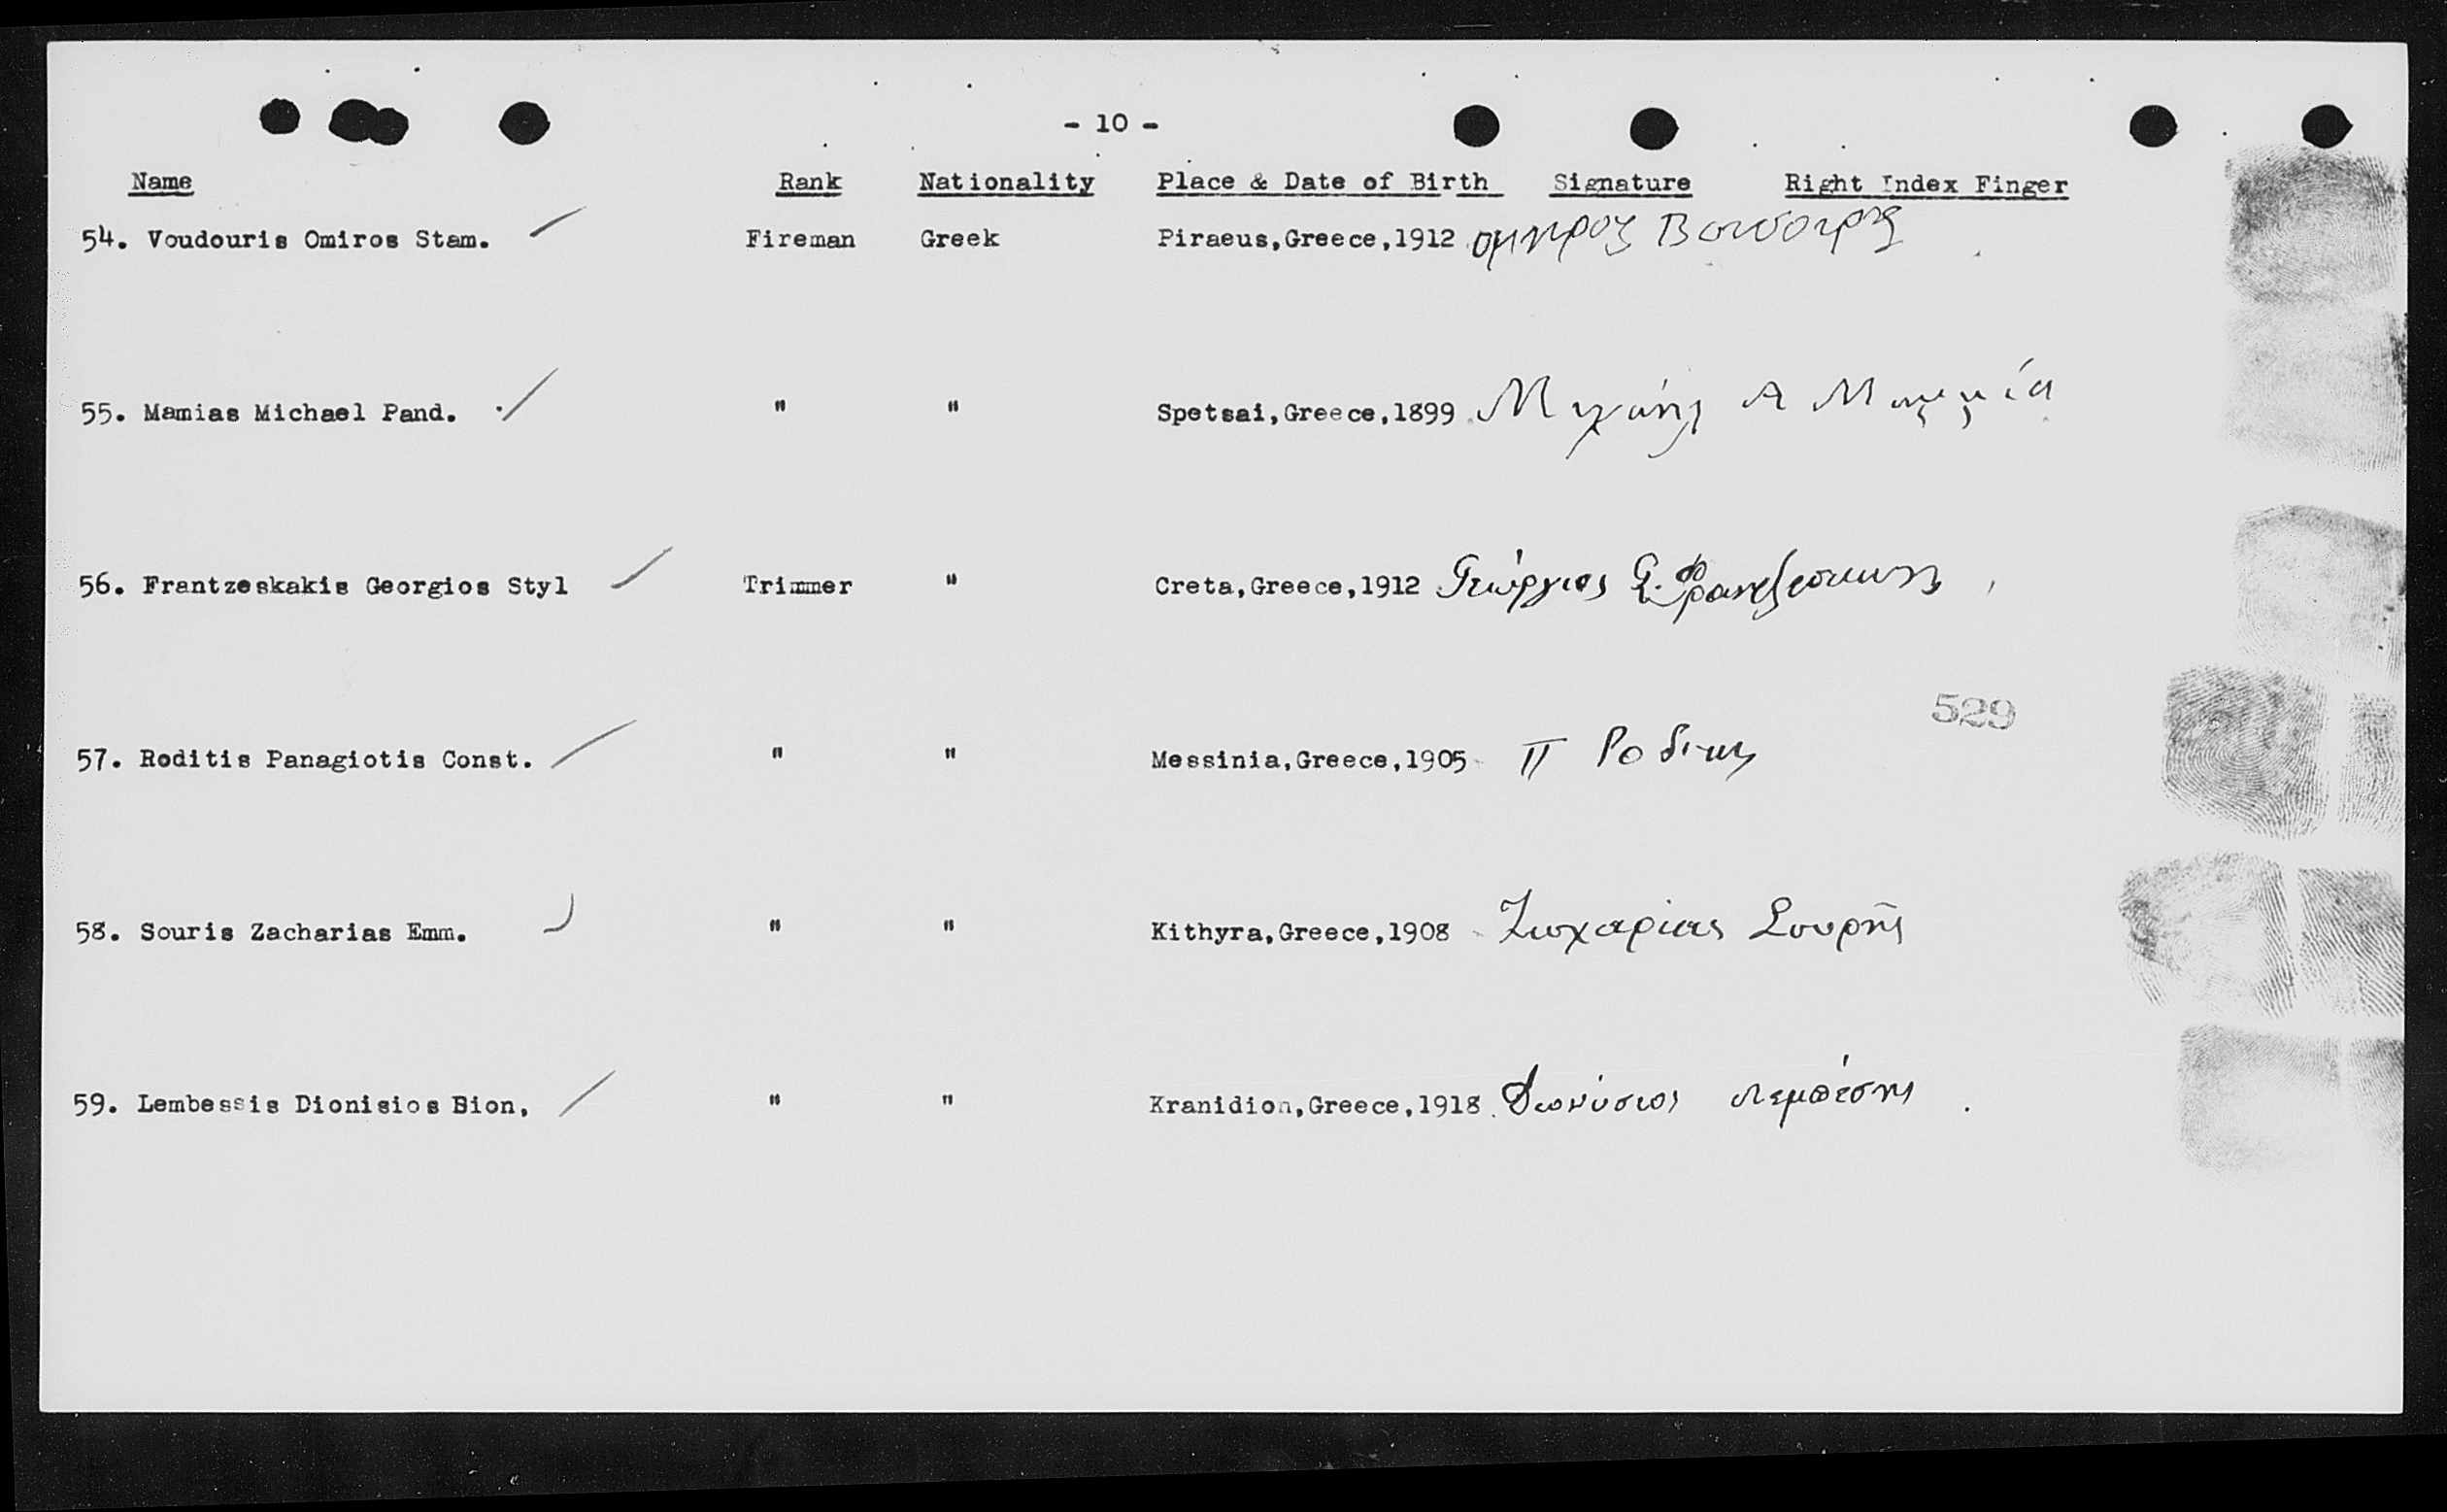 - 10 -
Name Rank Nationality Place & Date of Birth Signature Right Index Finger
54. Voudouris Omiros Stam. Fireman Greek Piraeus,Greece,1912 ομηρος Βουδουρης
55. Mamias Michael Pand. " " Spetsai,Greece,1899 Μιχάηλ
56. Frantzeskakis Georgios Styl Trimmer " Creta,Greece,1912 Γεώργιος Σ. Φραντζεσκακης
529
57. Roditis Panagiotis Const. " " Messinia,Greece,1905 Π Ροδιτης
58. Souris Zacharias Emm. " " Kithyra,Greece,1908 Ζαχαρίας Σουρῆς
59. Lembessis Dionisios Bion, " " Kranidion,Greece,1918 Διονύσιος Λεμπέσης